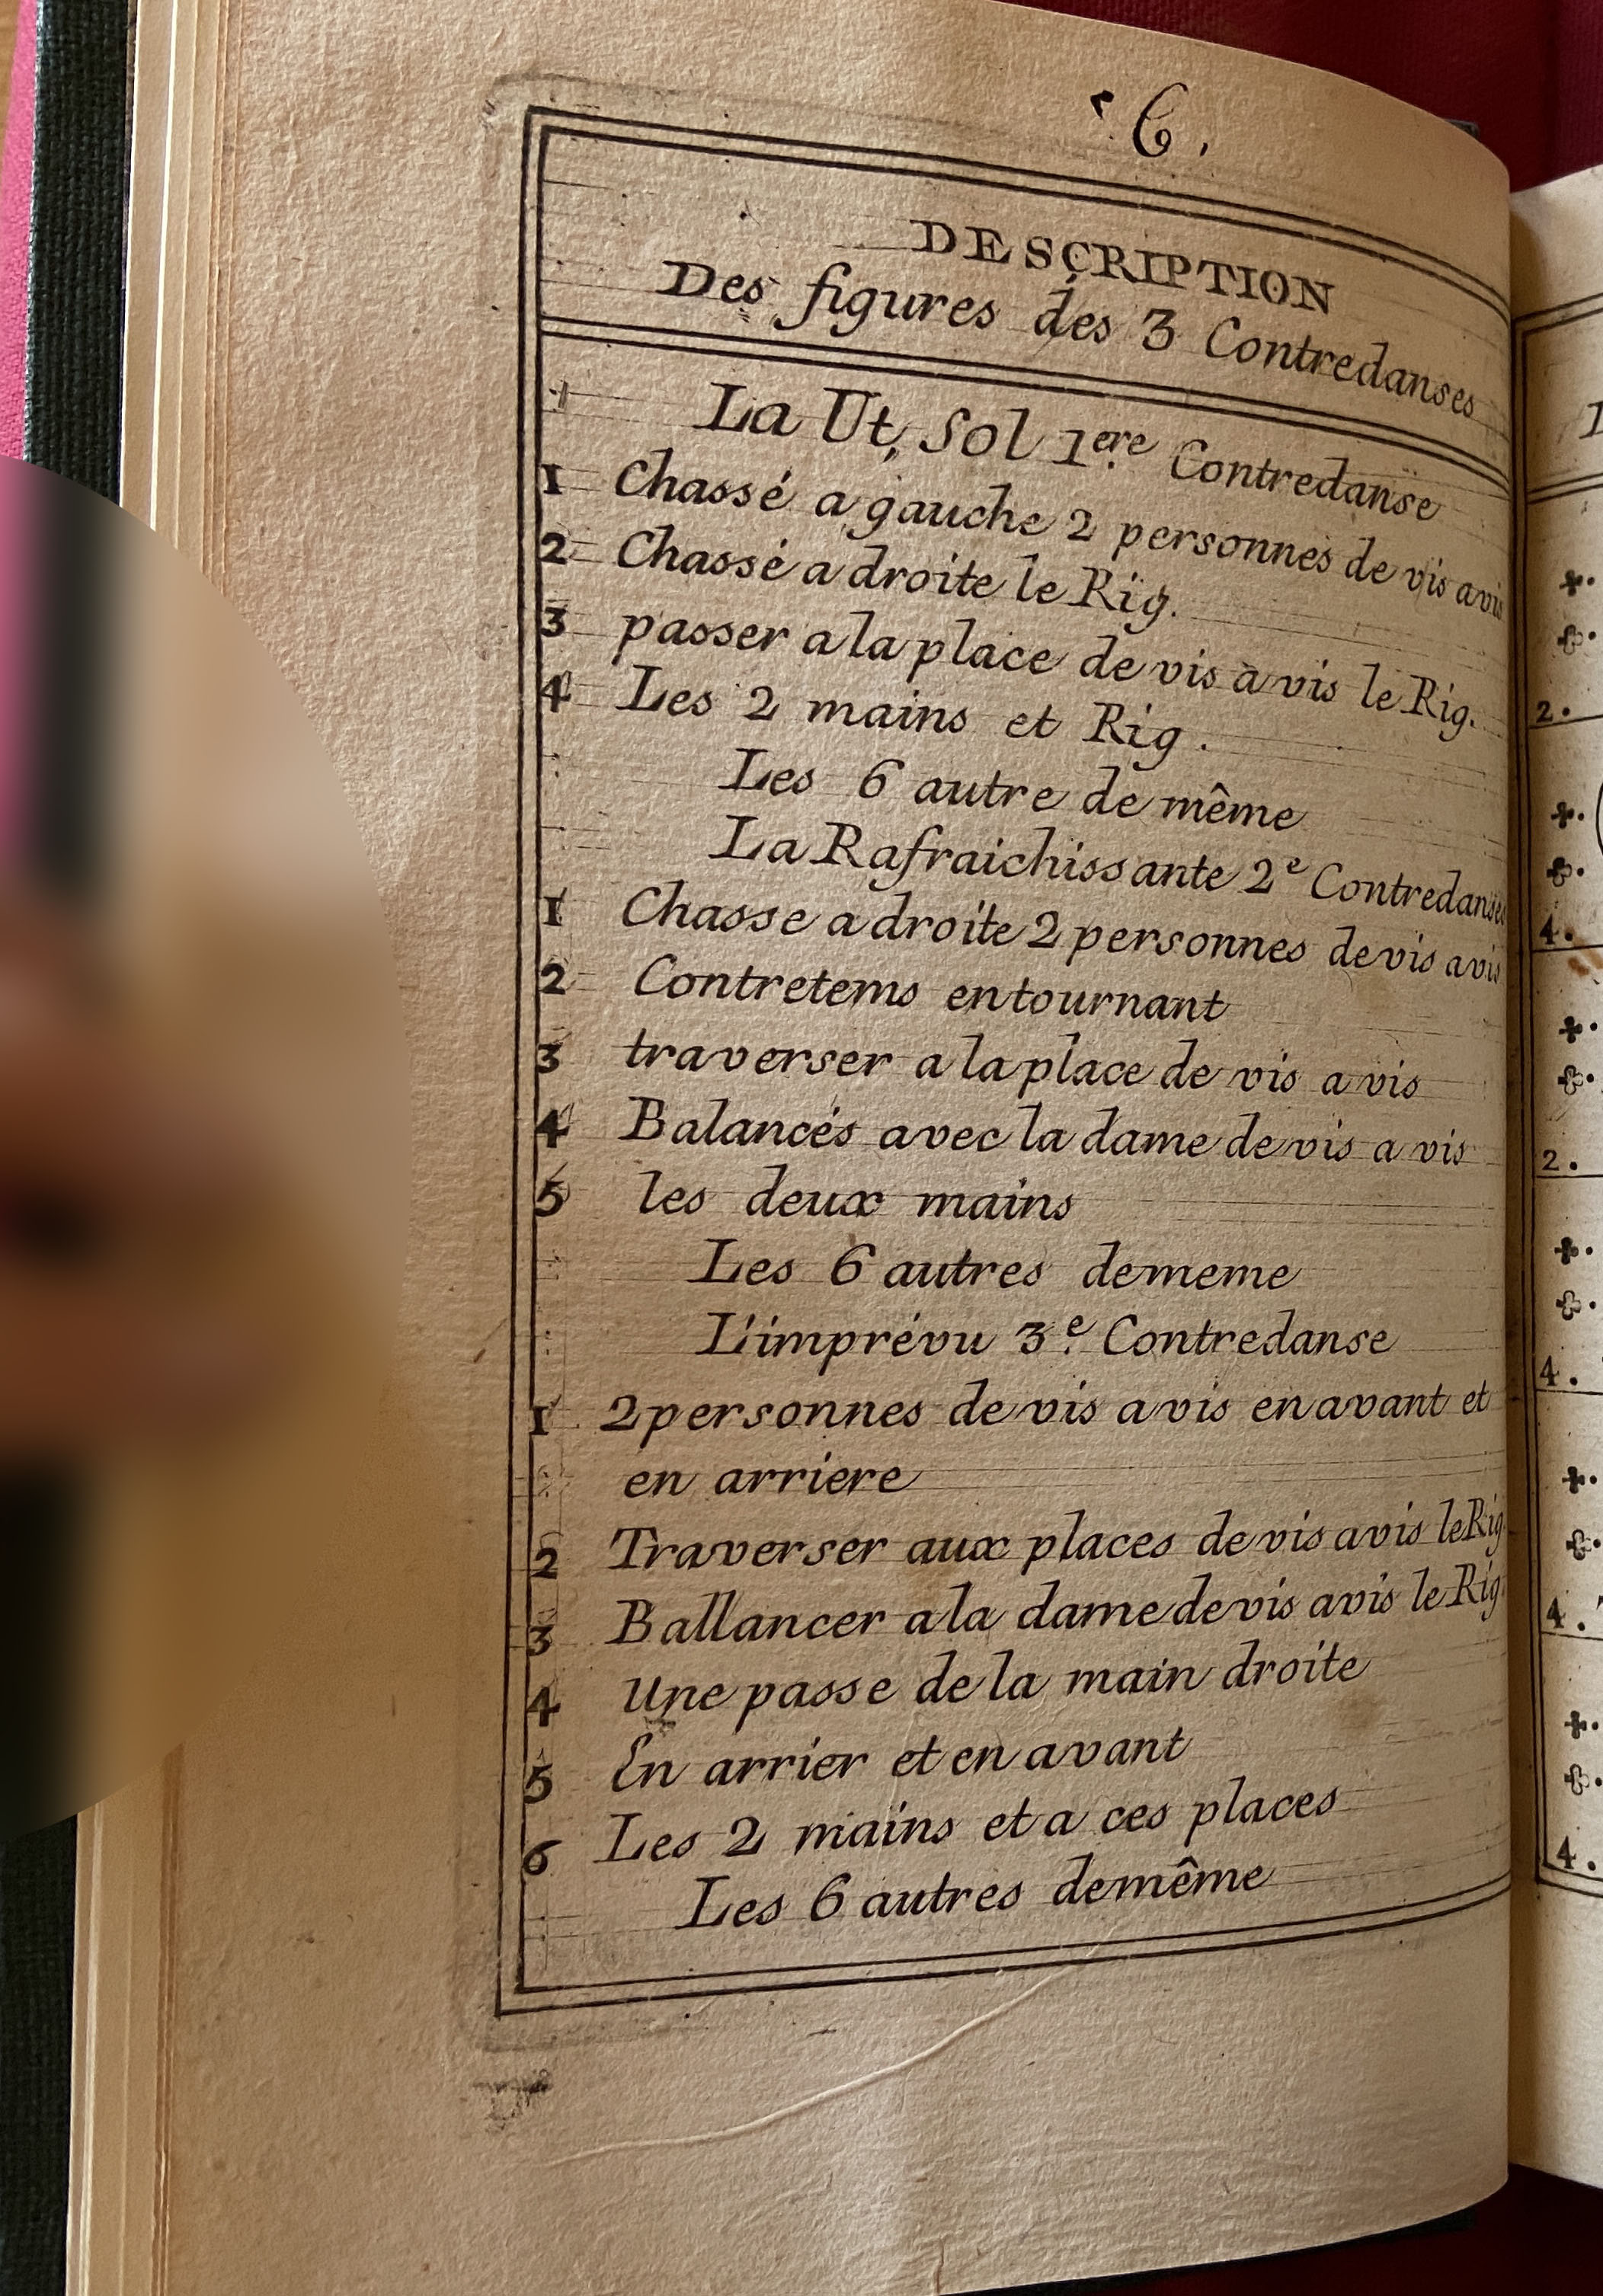 6.
DESCRIPTION
Des figures des 3 Contredanses
La Ut, Sol 1ere Contredanse
1 Chassé a gauche 2 personnes de vis avis
2 Chassé a droite le Rig.
3 passer a la place de vis a vis le Rig.
4 Les 2 mains et Rig.
Les 6 autre de même
La Rafraichissante 2e Contredanse
1 Chasse a droite 2 personnes de vis avis
2 Contretems en tournant
3 traverser a la place de vis a vis
4 Balancés avec la dame de vis a vis
5 les deux mains
Les 6 autres dememe
L'imprévu 3e. Contredanse
1 2 personnes de vis a vis en avant et
en arriere
2 Traverser aux places de vis avis le Rig
3 Ballancer a la dame de vis avis le Rig.
4 Une passe de la main droite
5 En arrier et en avant
6 Les 2 mains et a ces places
Les 6 autres demême
2.
4.
2.
4.
4.
4.